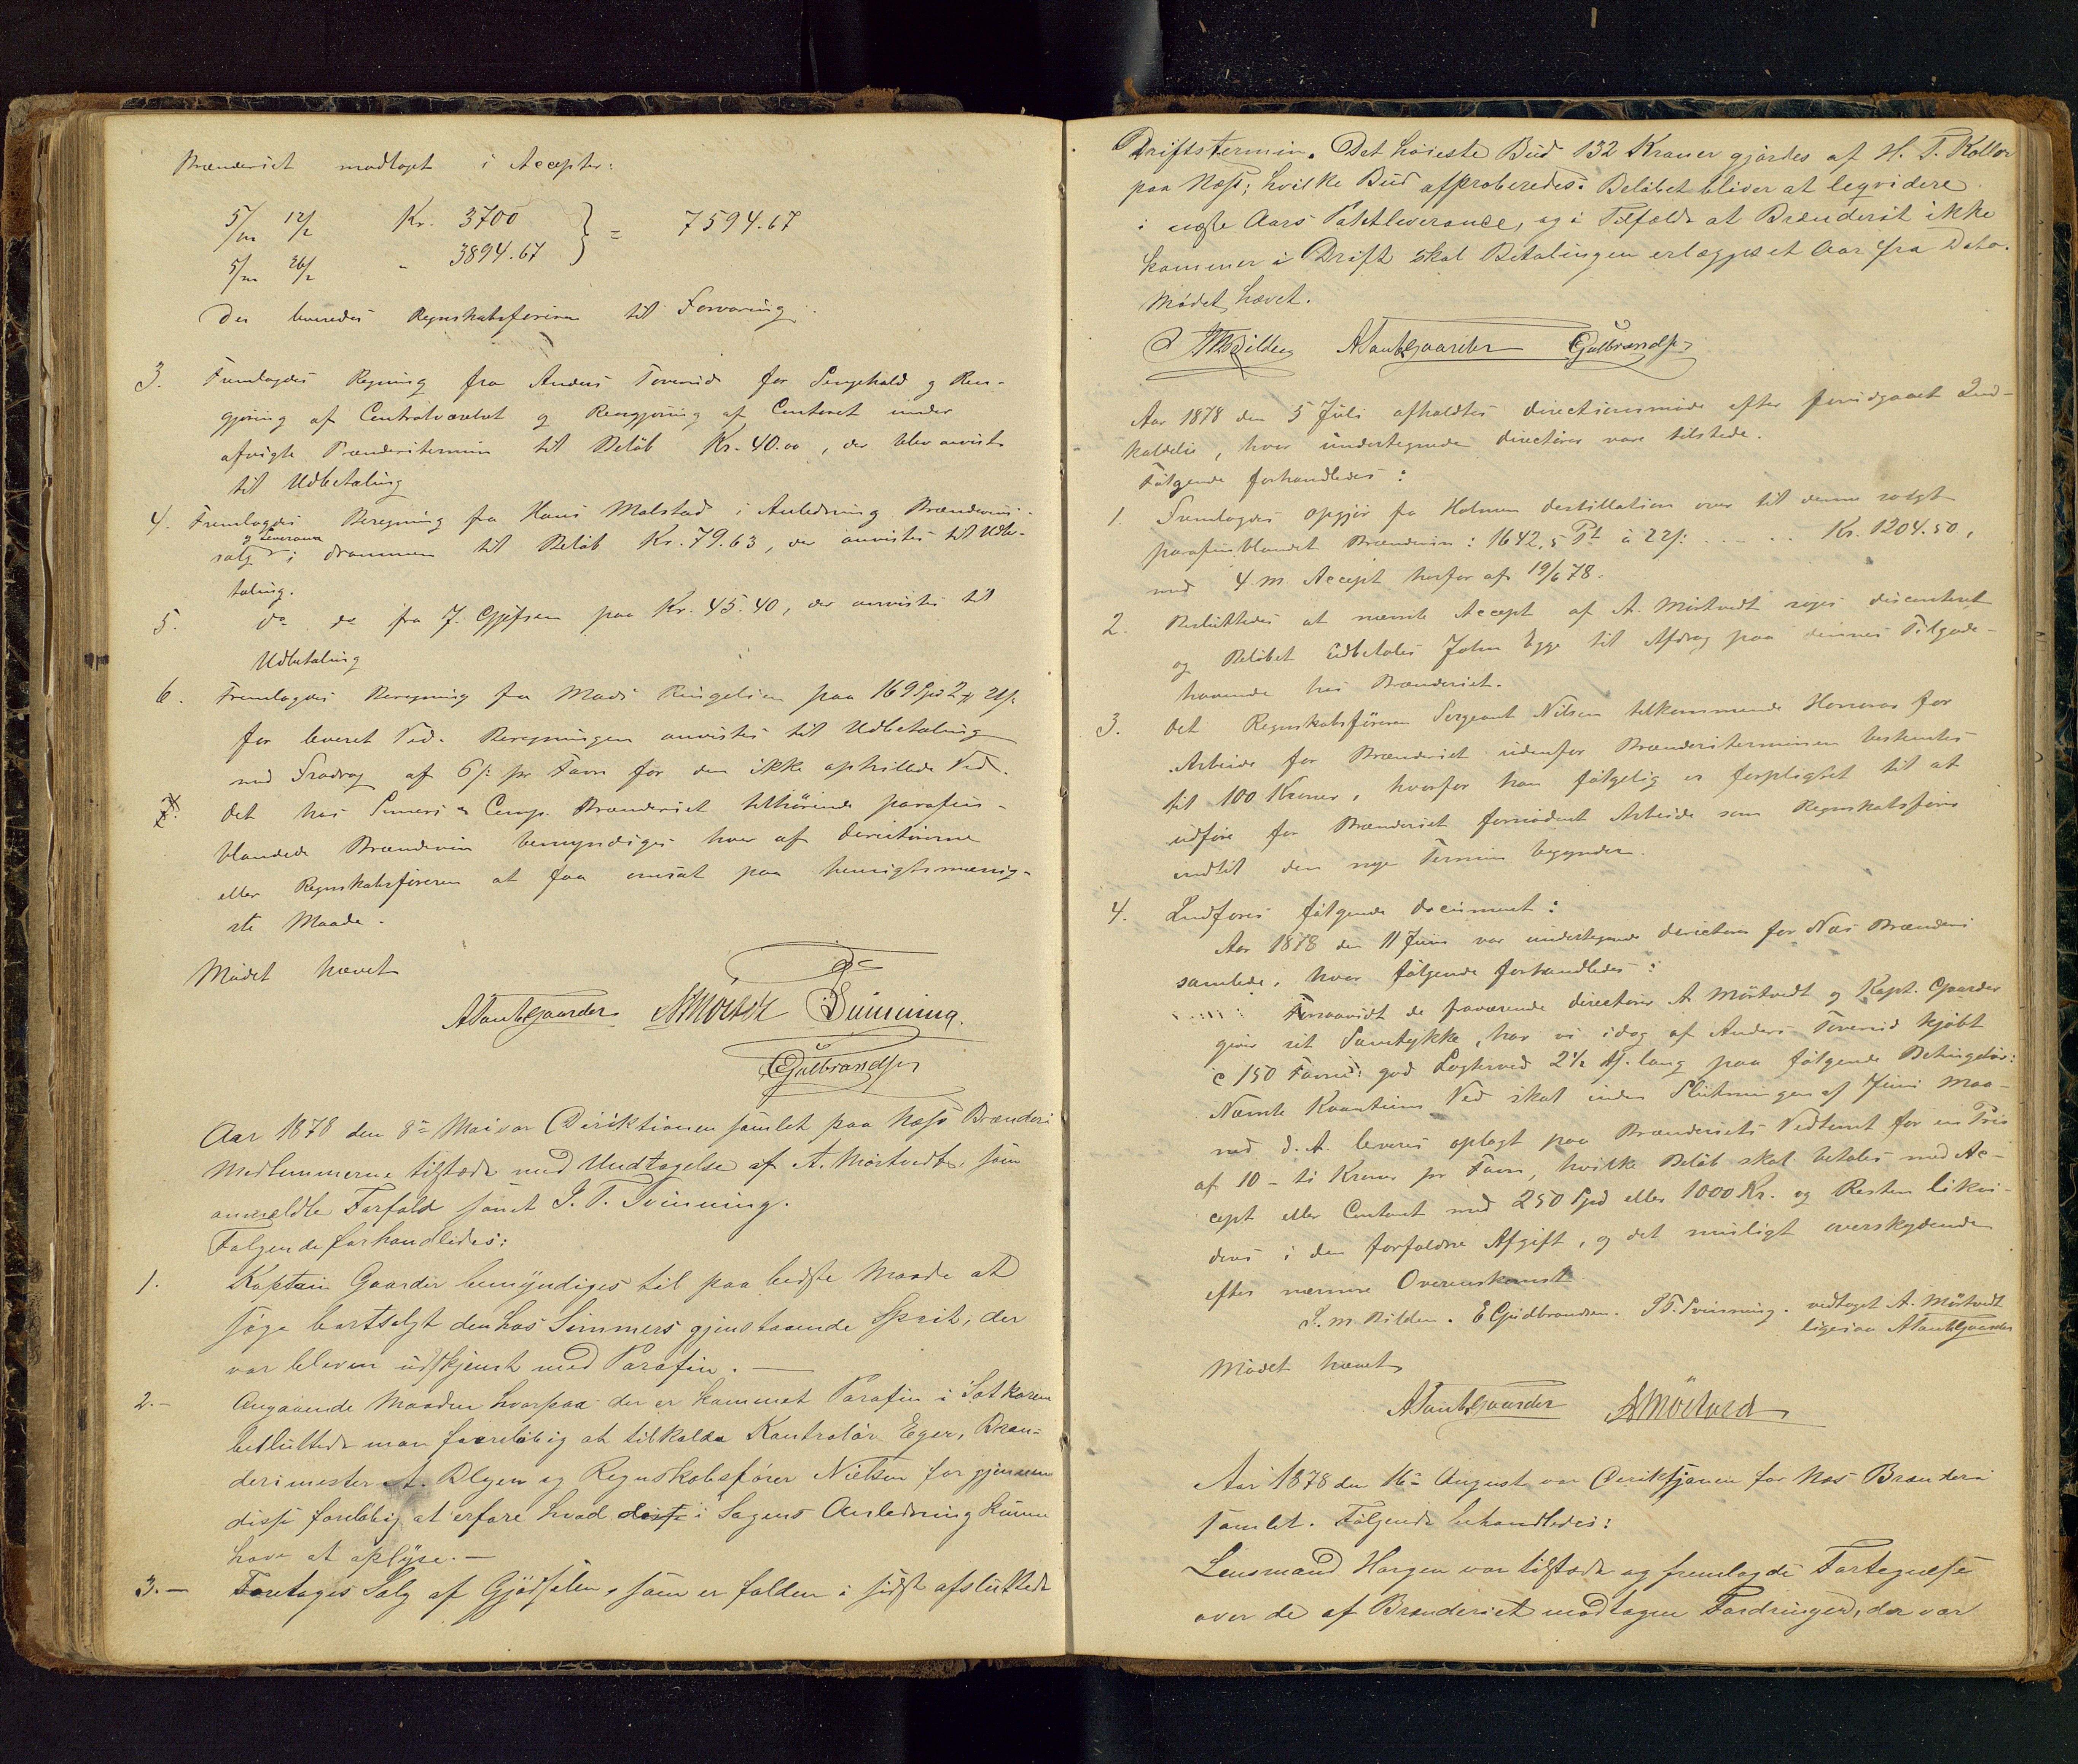 Brænderiet modtaget i Accepter:
5/m 12/2 Kr. 3700 } = 7594.67
5/m 26/2 " 3894.67
der leveredes Regnskabsføreren til Forvaring.
3. Fremlagdes Regning fra Anders Toverud for Sengehold og Ren-
gjøring af Centralværelset og Rengjøring af Contoret under
afvigte Brænderitermin til Beløb Kr. 40.00, der blev anvist
til Udbetaling
4. Fremlagdes Beregning fra Hans Malstad i Anledning Brændevins-
salg og Leverance i Drammen til Beløb Kr. 79.63, der anvistes til Udbe-
taling.
5. do do fra J. paa Kr. 45.40, der anvistes til
Udbetaling
6. Fremlagdes Beregning fra Mads Ringelien paa 169 Spd 2 # 21 s.
for leveret Ved. Beregningen anvistes til Udbetaling
med Fradrag af 6 s: pr Favn for den ikke opstillede Ved.
7. Det hos Simers & Comp. Brænderiet tilhørende parafin-
blandede Brændevin bemyndiges hver af Directørerne
eller Regnskabsføreren at faa omsat paa hensigtsmæssig-
ste Maade.
Mødet hævet
A Tank Gaarder A Mörtvedt Svinning
E Gulbrandsen
Aar 1878 den 8de Mai var Direktionen samlet paa Næss Brænderi
Medlemmerne tilstæde med Undtagelse af A. Mørtvedt, som
anmeldte Forfald samt I. T. Svinning.
Følgende forhandledes:
1. Kaptein Gaarder bemyndiges til paa bedste Maade at
søge bortsolgt den hos Simmers gjenstaaende Sprit, der
var bleven udskjemt med Parafin. —
2.- Angaaende Maaden hvorpaa der er kommet Parafin i Satkarene
besluttede man foreløbig at tilkalde Kontrolør Eger, Bræn-
derimester A. Blyen og Regnskabsfører Nielsen for gjennem
disse foreløbig at erfare hvad disse i Sagens Anledning kunne
have at oplyse. —
3.- Foretoges Salg af Gjødselen, som er falden i sidst afsluttede
Driftstermin. Det høieste Bud 132 Kroner gjordes af H. T. Koller
paa Næss; hvilke Bud approberedes. Beløbet bliver at leqvidere
i næste Aars Potetleverance, og i Tilfælde at Brænderiet ikke
kommer i Drift skal Betalingen erlægges et Aar fra Dato.
Mødet hævet.
M Bilden A Tank Gaarder E Gulbrandsen
Aar 1878 den 5 Juli afholdtes Directionsmøde efter foreudgaaet Ind-
kaldelse, hvor undertegnede Directører vare tilstede.
Følgende forhandledes:
1. Fremlagdes Opgjør fra Holmen Destillation over til denne solgt
parafinblandet Brændevin: 1642,5 Pt à 22 s: - - - - Kr. 1204.50,
med 4 m. Accept herfor af 19/6 78.
2. Besluttedes at nævnte Accept af A. Mörtvedt søges disconteret
og Beløbet udbetales John Egge til Afdrag paa dennes Tilgode-
havende hos Brænderiet.
3. Det Regnskabsføreren Sergeant Nilsen tilkommende Honorar for
Arbeide for Brænderiet udenfor Brænderiterminen bestemtes
til 100 Kroner, hvorfor han følgelig er forpligtet til at
udføre for Brænderiet fornødent Arbeide som Regnskabsfører
indtil den nye Termin begynder.
4. Indføres følgende Document:
Aar 1878 den 11 Juni var undertegnede Directører for Næs Brænderi
samlede, hvor følgende forhandledes:
Forsaavidt de fraværende Directører A Mörtvedt og Kapt. Gaarder
giver sit Samtykke, har vi idag af Anders Toverud kjøbt
c 150 Favne god Logtved 2½ Al. lang paa følgende Betingelser:
Nævnte Kvantum Ved skal inden Slutningen af Juni Maa-
ned d. A. leveres oplagt paa Brænderiets Vedtomt for en Pris
af 10 - ti Kroner pr Favn, hvilke Beløb skal betales med Ac-
cept eller Contant med 250 Spd eller 1000 Kr. og Resten likvi-
deres i den forfaldne Afgift, og det muligt overskydende
efter nærmere Overenskomst.
I. M Bilden. E Gulbrandsen. I T. Svinning. vedtaget A. Mörtvedt
ligesaa A Tank Gaarder
Mødet hævet
A Tank Gaarder A Mörtvedt
Aar 1878 den 16de August var Direktjonen for Næs Brænderi
samlet. Følgende behandledes:
Lensmand Horgen var tilstæde og fremlagde Fortegnelse
over de af Brænderiet modtagne Fordringer, der var